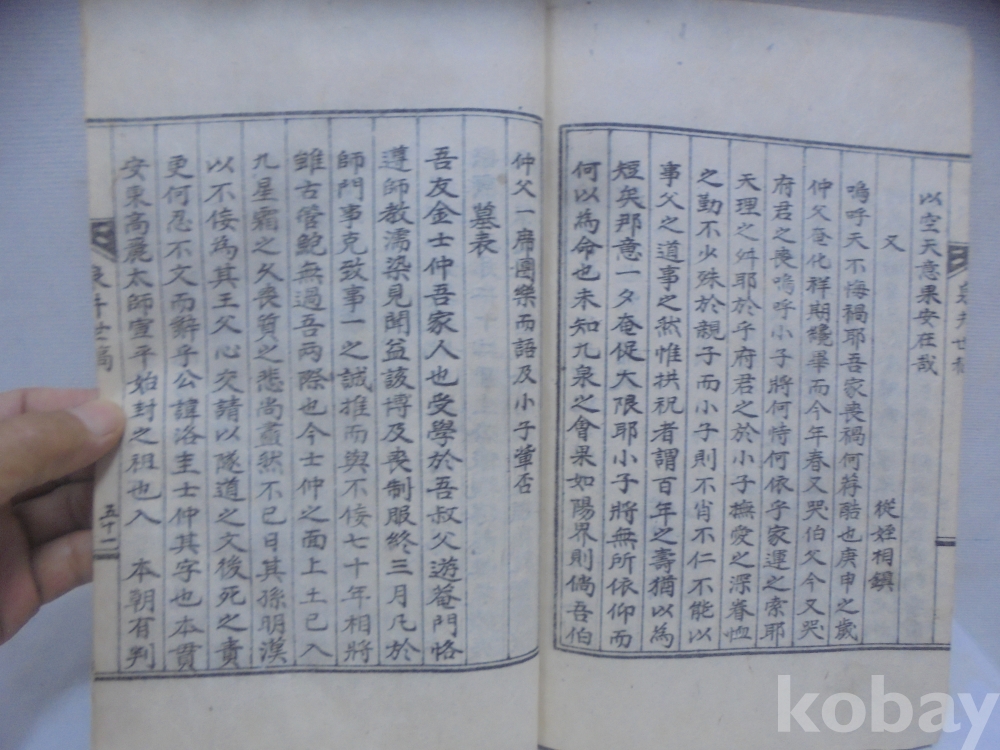 以空天意果安在哉
又
從姪相鎭
嗚呼天不悔禍耶吾家喪禍何荐酷也庚申之歲
仲父奄化祥期纔畢而今年春又哭伯父今又哭
府君之喪嗚呼小子將何恃何依乎家運之索耶
天理之舛耶於乎府君之於小子撫愛之深眷恤
之勤不少殊於親子而小子則不肖不仁不能以
事父之道事之然惟拱祝者謂百年之壽猶以爲
短矣那意一夕奄促大限耶小子將無所依仰而
何以爲命也未知九泉之會果如陽界則倘吾伯
仲父一席團樂而語及小子輩否
墓表
吾友金士仲吾家人也受學於吾叔父遊菴門恪
遵師教濡染見聞益該博及喪制服終三月凡於
師門事克致事一之誠推而與不佞七十年相將
雖古管鮑無過吾兩際也今士仲之面上土已入
九星霜之久喪質之悲尚衋然不已日其孫明漢
以不佞爲其王父心交請以隧道之文後死之責
更何忍不文而辭乎公諱洛圭士仲其字也本貫
安東高麗太師宣平始封之祖也入 本朝有判
世稿
五十一
kobay